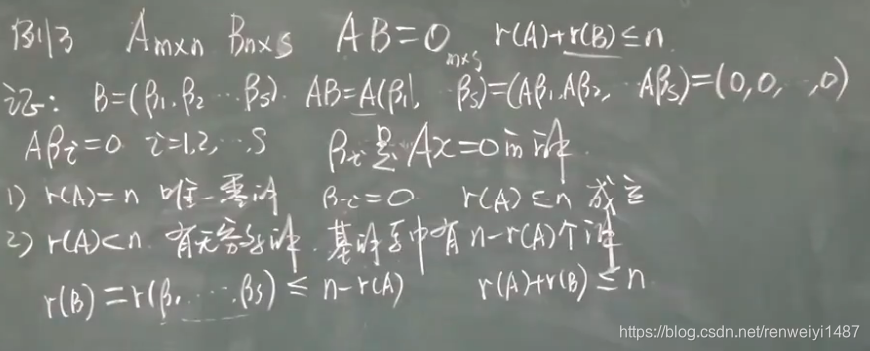 例3 A_{m×n} B_{n×s} AB=0_{m×s} r(A)+r(B)≤n.
证: B=(β₁,β₂…βs). AB=A(β₁, …βs)=(Aβ₁,Aβ₂, …Aβs)=(0,0,…,0)
Aβi=0 i=1,2,…,s βi是Ax=0的解
1) r(A)=n 唯一零解 βi=0 r(A)≤n 成立
2) r(A)<n. 有无穷多解. 基础解系中有n-r(A)个解
r(B)=r(β₁…βs)≤n-r(A) r(A)+r(B)≤n
https://blog.csdn.net/renweiyi1487